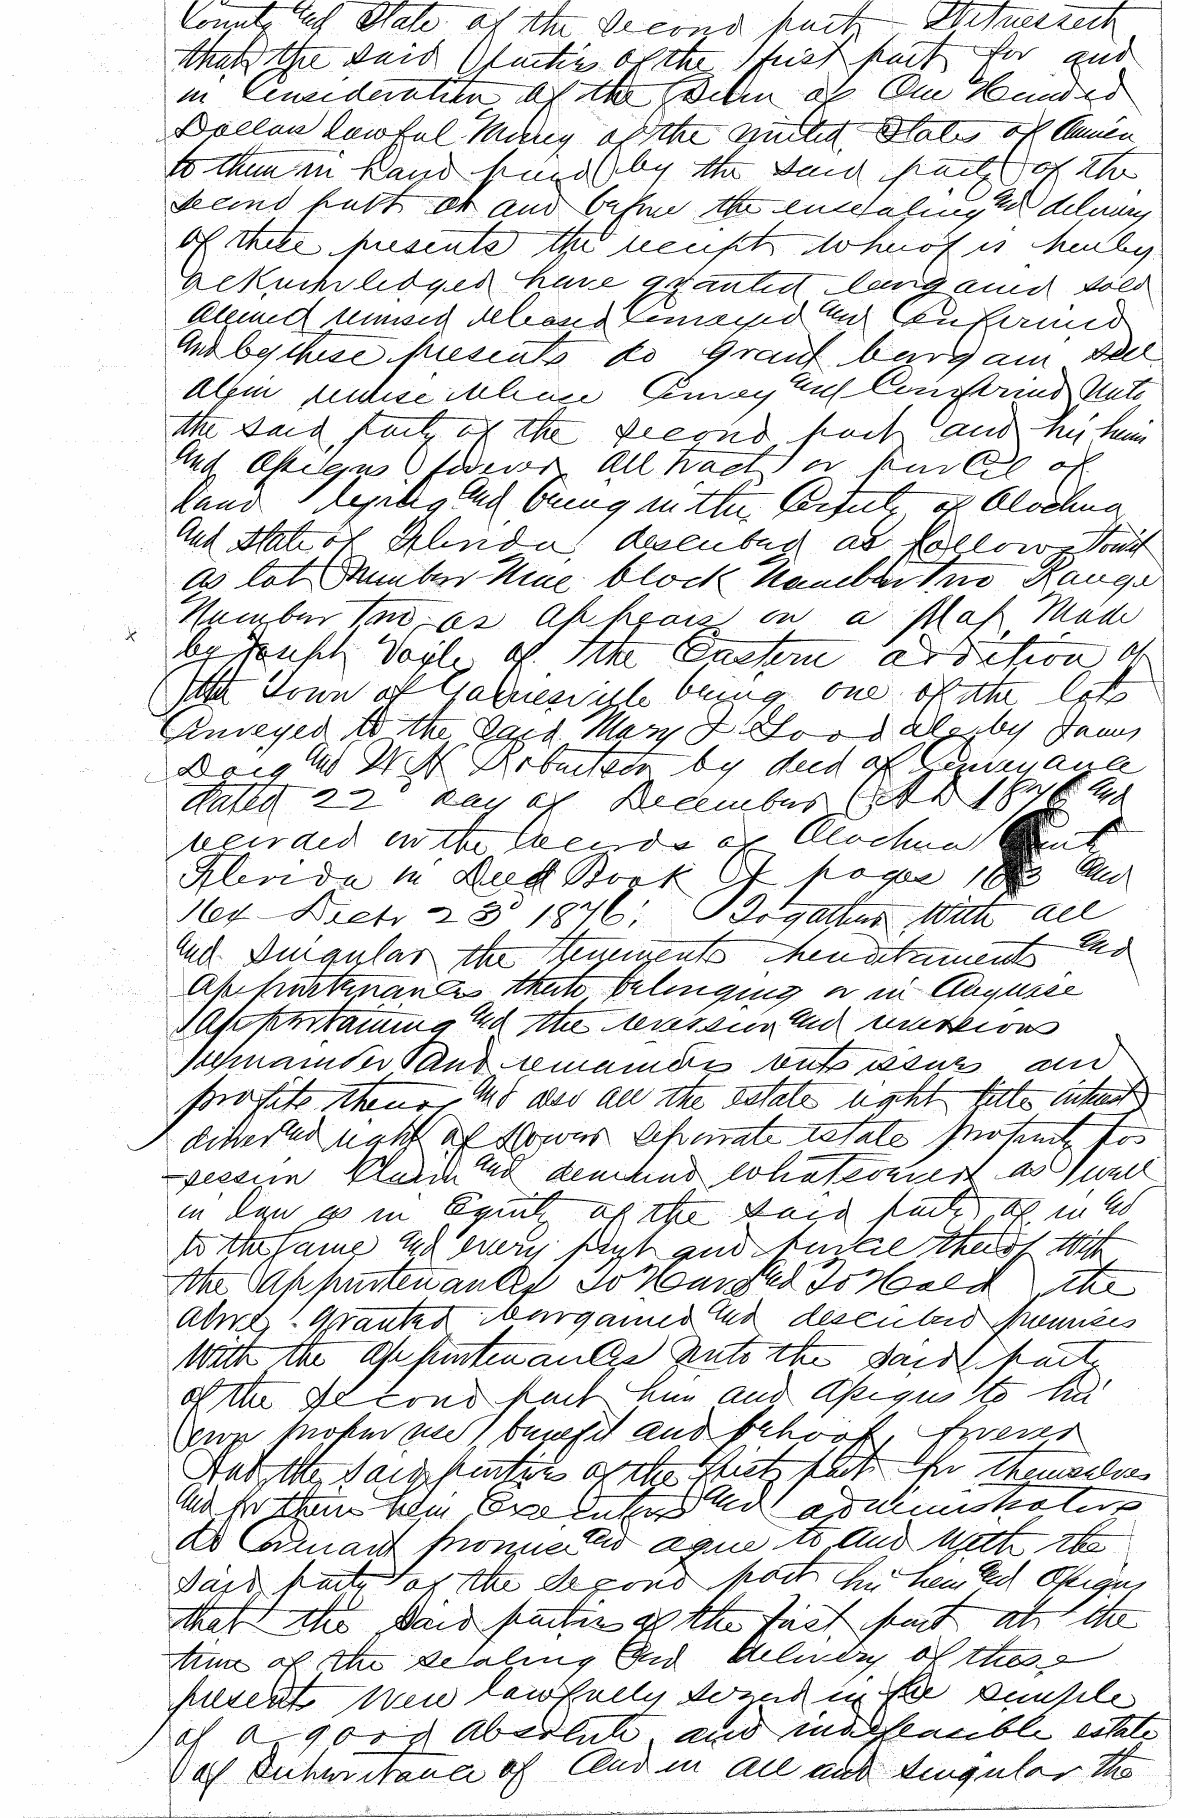 County and State of the second part Witnesseth
that the said parties of the first part for and
in Consideration of the Sum of One Hundred
Dollars lawful Money of the united States of America
to them in hand paid by the said party of the
second part at and before the ensealing and delivery
of these presents the receipt whereof is hereby
acknowledged have granted bargained sold
aliened remised released Conveyed and Confirmed
And by these presents do grant bargain sell
alien remise release Convey and Confirm Unto
the said party of the second part and his heirs
And Assigns forever All tract or parcel of
land lying and being in the County of Alachua
And State of Florida described as follows towit
as lot Number Nine block Number Two Range
Number Two as appears on a Map Made
by Joseph Doyle of the Eastern addition of
the Town of Gainesville being one of the lots
Conveyed to the Said Mary J Goodale by James
Doig and W H Robertson by deed of Conveyance
dated 22d day of December A D 1876 and
recorded in the records of Alachua County
Florida in Deed Book pages 163 and
164 Decr 23d 1876: Together With all
and singular the tenements hereditaments and
appurtenances thereto belonging or in Anywise
Appertaining and the reversion and reversions
remainder and remainders rents issues and
profits thereof And also all the estate right title interest
dower and right of dower separate estate property pos
session Claim and demand whatsoever as well
in law as in Equity of the said party of in and
to the Same and every part and parcel thereof With
the Appurtenances To Have and To Hold the
above granted bargained and described premises
With the appurtenances unto the said party
of the second part heirs and Assigns to his
own proper use benefit and behoof forever
And the said parties of the first part for themselves
and for their heirs Executors and administrators
do Covenant promise and agree to and With the
said party of the second part his heirs and Assigns
that the said parties of the first part at the
time of the sealing and delivery of these
presents were lawfully seized in fee simple
of a good absolute and indefeasible estate
of Inheritance of And in all and singular the